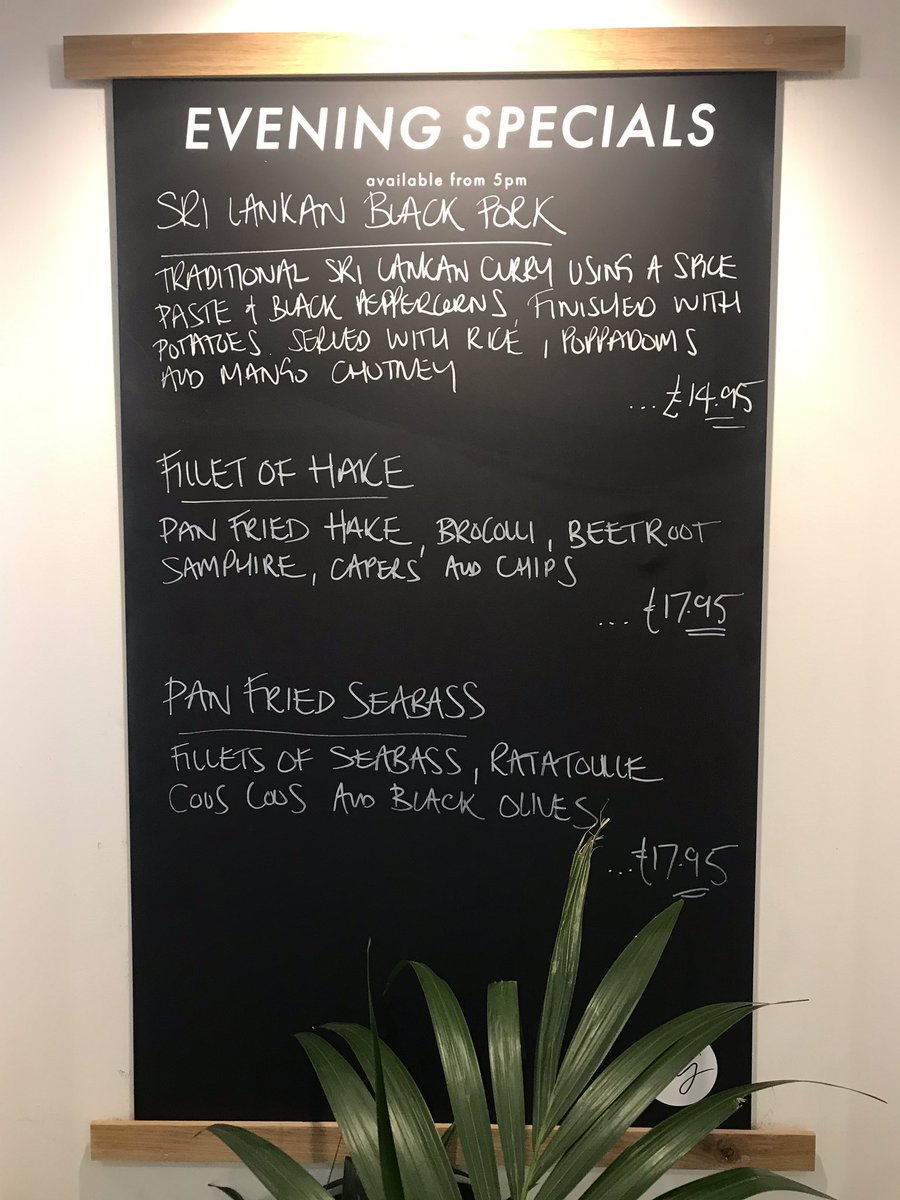 EVENING SPECIALS
available from 5pm
SRI LANKAN BLACK PORK
TRADITIONAL SRI LANKAN CURRY USING A SPICE
PASTE & BLACK PEPPERCORNS, FINISHED WITH
POTATOES. SERVED WITH RICE, POPPADOMS
AND MANGO CHUTNEY
...£14.95
FILLET OF HAKE
PAN FRIED HAKE, BROCOLLI, BEETROOT
SAMPHIRE, CAPERS AND CHIPS
...£17.95
PAN FRIED SEABASS
FILLETS OF SEABASS, RATATOUILLE
COUS COUS AND BLACK OLIVES
...£17.95